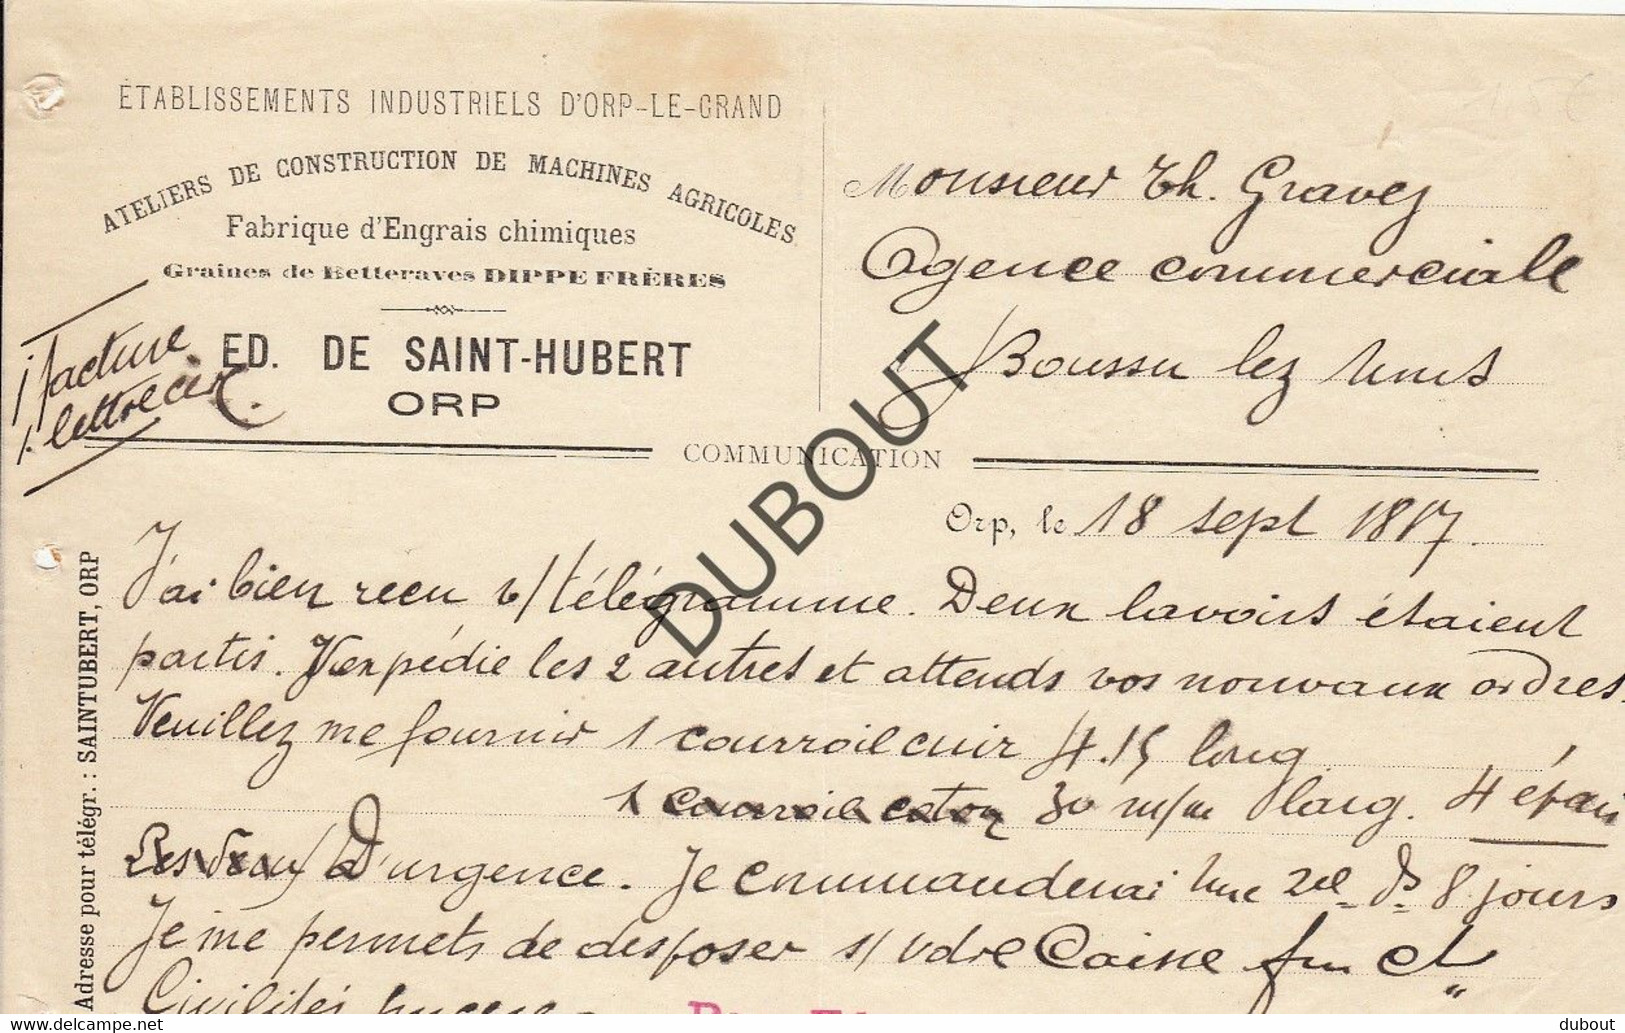 ÉTABLISSEMENTS INDUSTRIELS D'ORP-LE-GRAND
ATELIERS DE CONSTRUCTION DE MACHINES AGRICOLES
Fabrique d'Engrais chimiques
Graines de Betteraves DIPPE FRÈRES
ED. DE SAINT-HUBERT
ORP
1 facture
1 lettre
Monsieur Th. Gravez
Agence commerciale
Boussu lez
COMMUNICATION
Orp, le 18 sept 1897.
Adresse pour télégr. : SAINTUBERT, ORP
J'ai bien reçu v/ télégramme. Deux lavoirs étaient
partis. J'expédie les 2 autres et attends vos nouveaux ordres.
Veuillez me fournir 1 courroie cuir 4.15 long
1 courroie coton 30 m/m larg. 4 épais
D'urgence. Je commanderai une 2de ds 8 jours
Je me permets de disposer s/ votre Caisse
Civilités
DUBOUT
delcampe.net
dubout